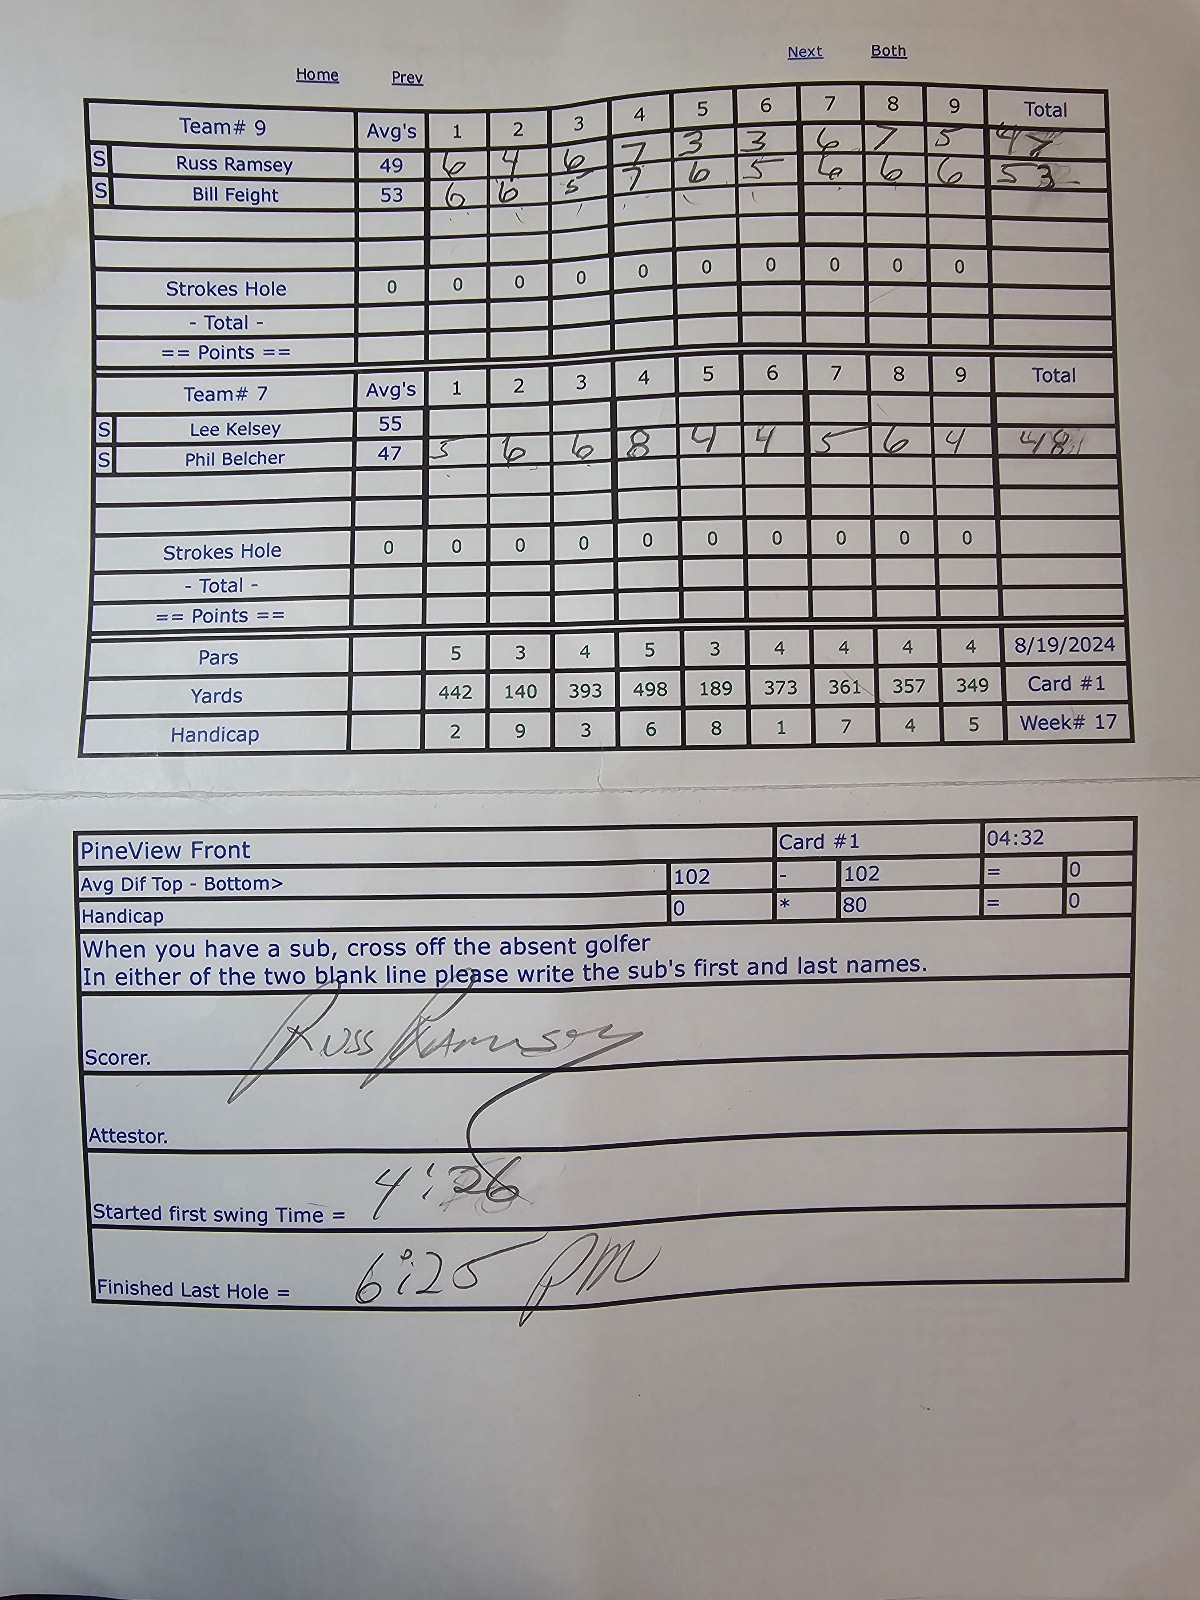 Home Prev Next Both
Team# 9 Avg's 1 2 3 4 5 6 7 8 9 Total
S Russ Ramsey 49 6 4 6 7 3 3 6 7 5 47
S Bill Feight 53 6 6 5 7 6 5 6 6 6 53
Strokes Hole 0 0 0 0 0 0 0 0 0 0
- Total -
== Points ==
Team# 7 Avg's 1 2 3 4 5 6 7 8 9 Total
S Lee Kelsey 55
S Phil Belcher 47 5 6 6 8 4 4 5 6 4 48
Strokes Hole 0 0 0 0 0 0 0 0 0 0
- Total -
== Points ==
Pars 5 3 4 5 3 4 4 4 4 8/19/2024
Yards 442 140 393 498 189 373 361 357 349 Card #1
Handicap 2 9 3 6 8 1 7 4 5 Week# 17
PineView Front Card #1 04:32
Avg Dif Top - Bottom> 102 - 102 = 0
Handicap 0 * 80 = 0
When you have a sub, cross off the absent golfer
In either of the two blank line please write the sub's first and last names.
Scorer. Russ Ramsey
Attestor.
Started first swing Time = 4:26
Finished Last Hole = 6:25 PM